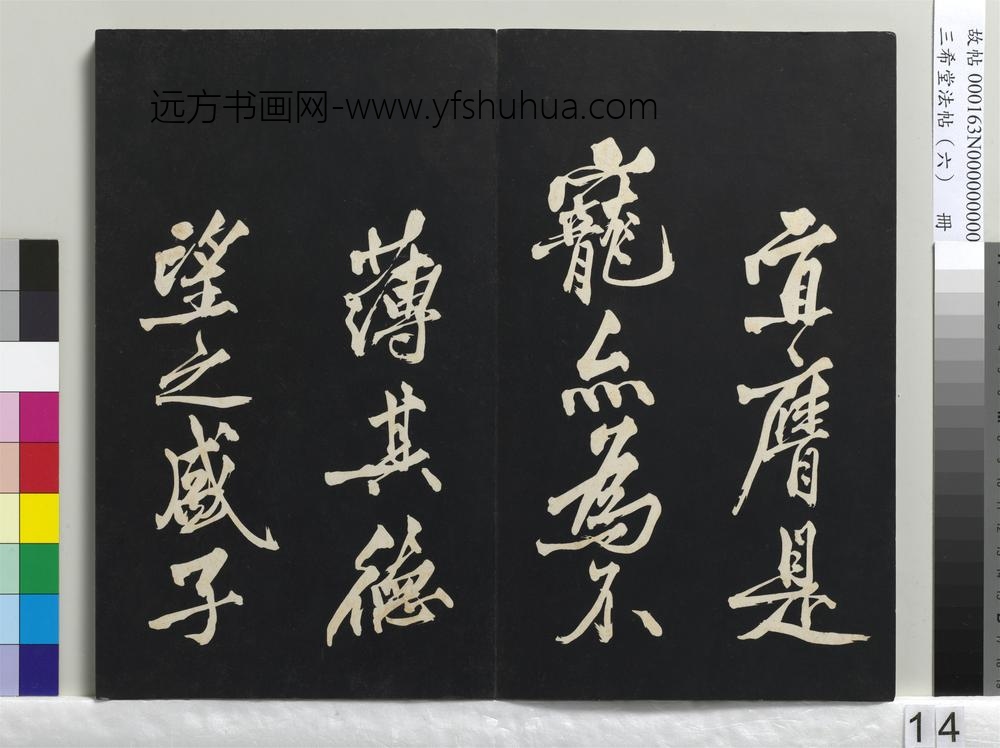 远方书画网-www.yfshuhua.com
宜膺是
寵亦為不
薄其德
望之盛子
故帖 000163N000000000
三希堂法帖（六） 冊
14